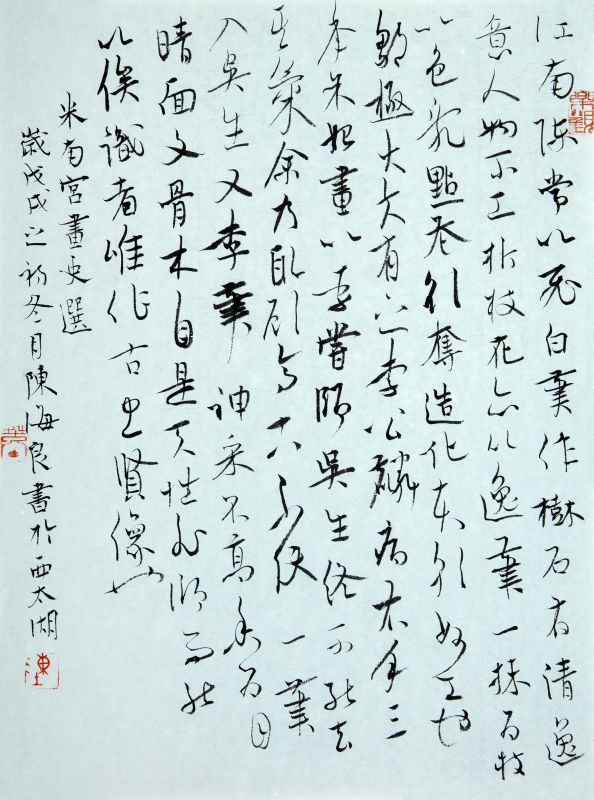 江南陳常以飛白筆作樹石有清逸
意人物不工折枝花亦以逸筆一抹為枝
以色亂點花欲奪造化本朝妙工也
鄭極大夫有之李公麟病右手三
年余始畫以李嘗師吳生終不能去
其氣余乃取顧高古不使一筆
入吳生又李筆神采不高余為目
睛面文骨木自是天性非師而能
以俟識者唯作古忠賢像也
米南宮畫史選
歲戊戌之初冬月陳海良書於西太湖